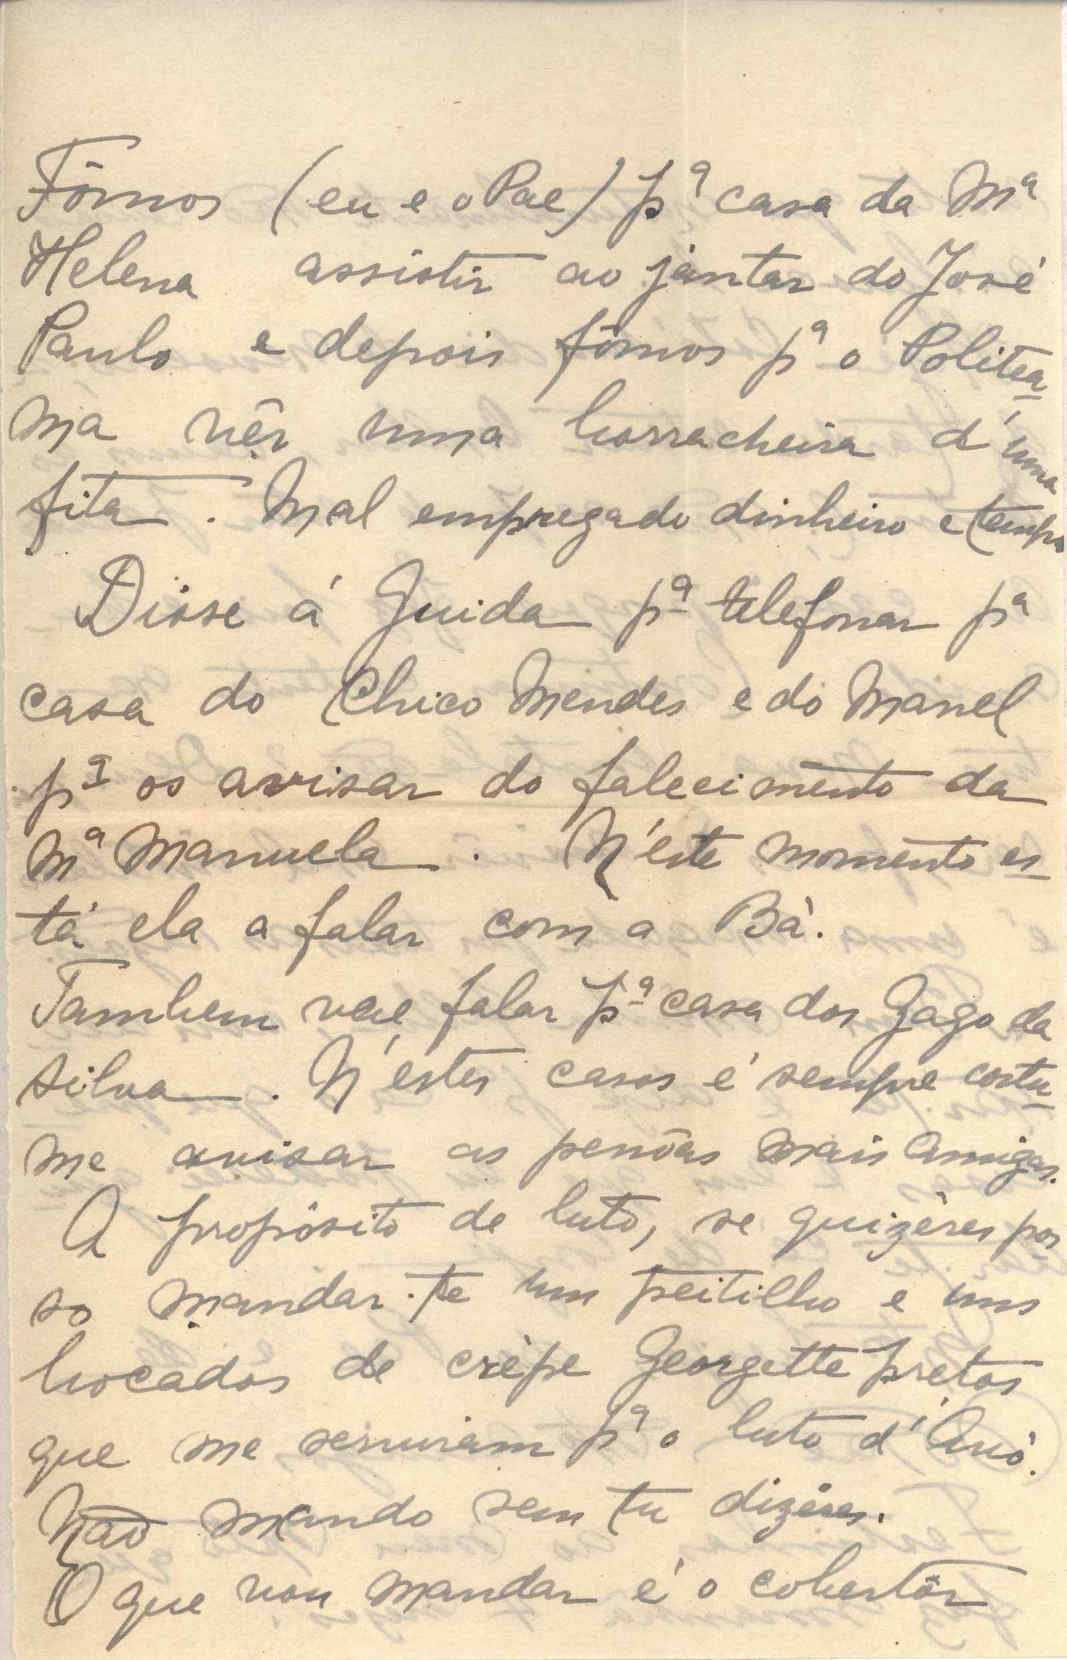 Fômos (eu e o Pae) pª casa da Mª
Helena assistir ao jantar do José
Paulo e depois fômos pª o Politea-
ma vêr uma borracheira d'uma
fita. Mal empregado dinheiro e tempo
Disse á Guida pª telefonar pª
casa do Chico Mendes e do Manel
pª os avisar do falecimento da
Mª Manuela. N'este momento es-
tá ela a falar com a Bá.
Tambem vae falar pª casa dos Gago da
Silva. N'estes casos é sempre costu-
me avisar as pessôas mais amigas.
A propósito de luto, se quizéres pos
so mandar-te um peitilho e uns
bocados de crèpe Georgette pretos
que me serviram pª o luto d'Avó.
Não mando sem tu dizéres.
O que vou mandar é o cobertôr